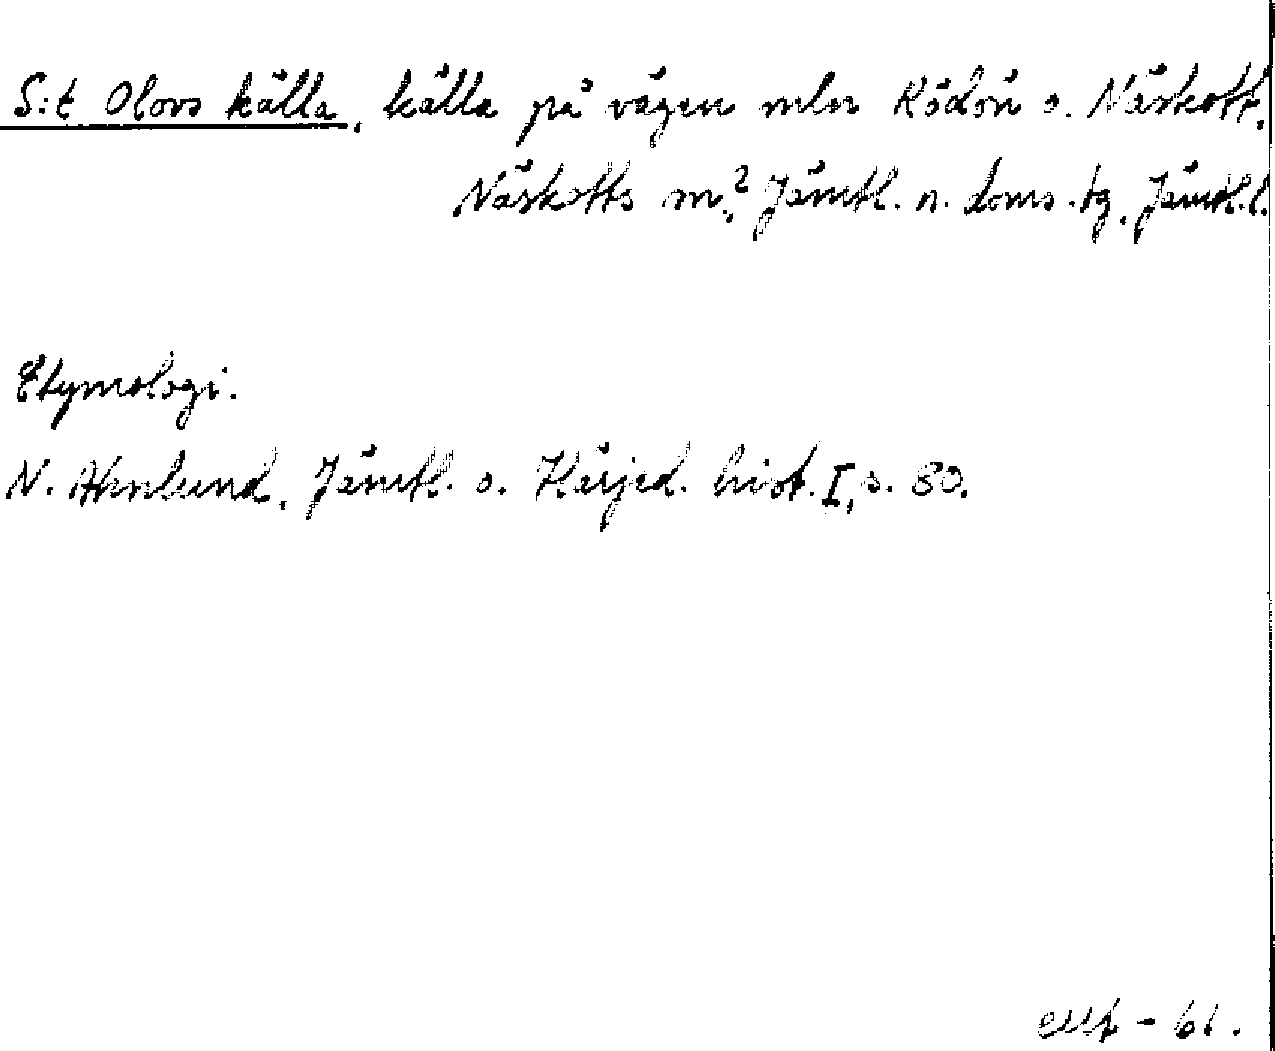 S:t Olovs källa, källa på vägen mln Rödön o. Näskott,
Näskotts sn.? Jämtl. n. doms. tg, Jämtl. l.
Etymologi.
N. Ahnlund, Jämtl. o. Härjed. hist. I, s. 80.
- 61.